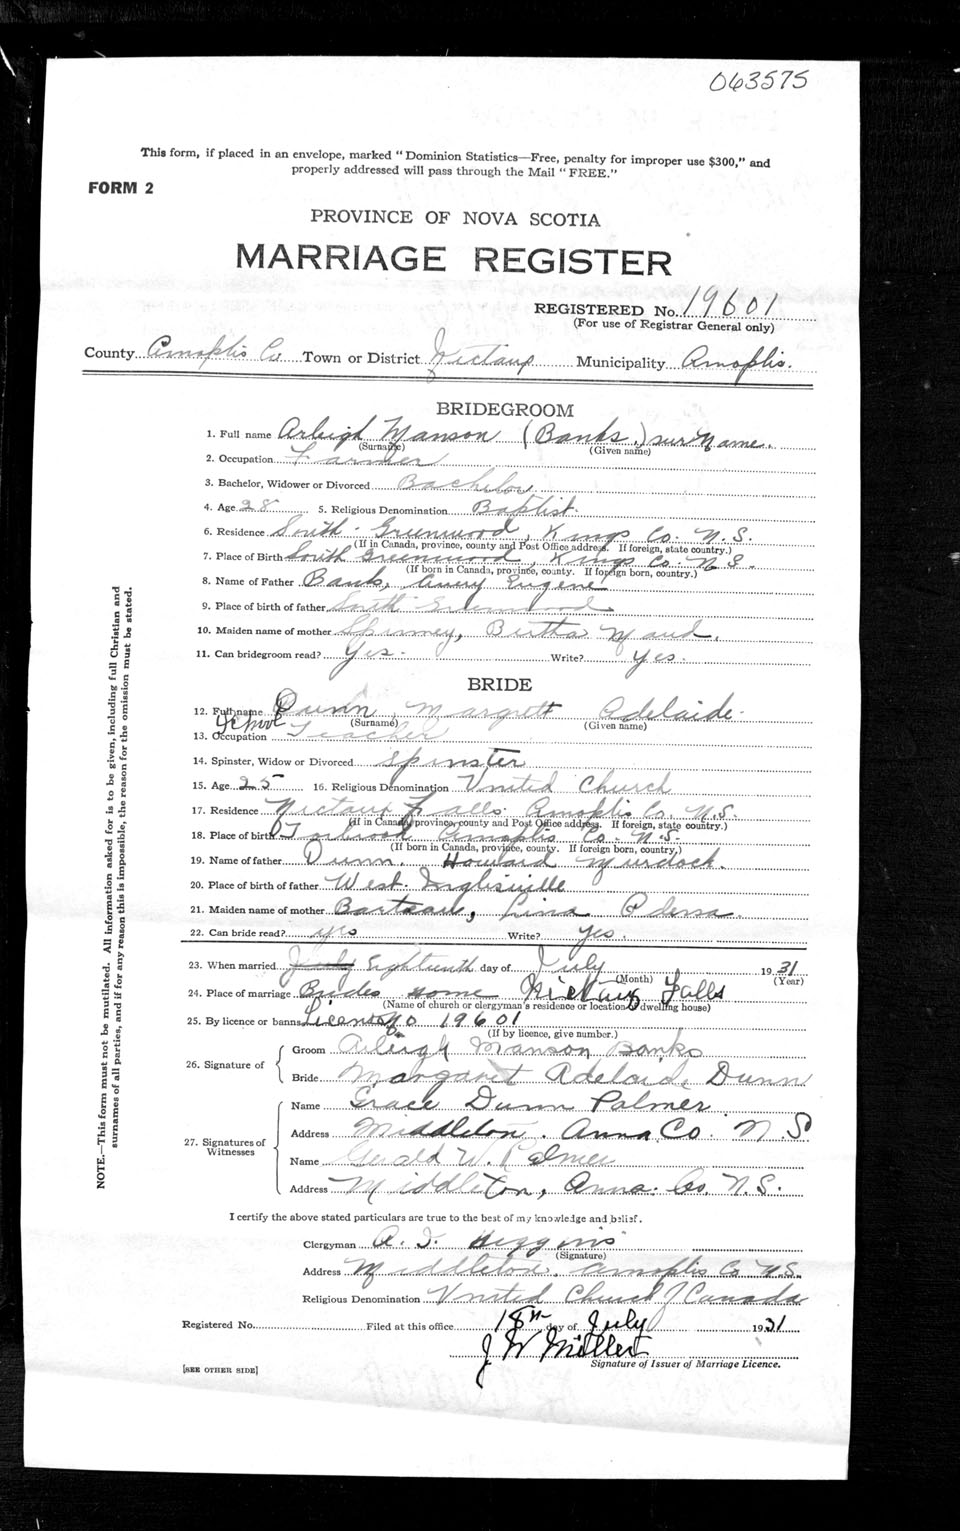 063575
This form, if placed in an envelope, marked "Dominion Statistics—Free, penalty for improper use $300," and
properly addressed will pass through the Mail "FREE."
FORM 2
PROVINCE OF NOVA SCOTIA
MARRIAGE REGISTER
REGISTERED No. 19601
(For use of Registrar General only)
County Annaplis Co Town or District Nictaux Municipality Annaplis.
BRIDEGROOM
1. Full name Arleigh Manson (Banks,) sur Name.
(Surname) (Given name)
2. Occupation Farmer
3. Bachelor, Widower or Divorced Bachelor
4. Age 28 5. Religious Denomination Baptist.
6. Residence South Greenwood, Kings Co. N.S.
(If in Canada, province, county and Post Office address. If foreign, state country.)
7. Place of Birth South Greenwood, Kings Co. N.S.
(If born in Canada, province, county. If foreign born, country.)
8. Name of Father Banks, Avery Eugene
9. Place of birth of father South Greenwood
10. Maiden name of mother Spinney, Bertha Maud.
11. Can bridegroom read? Yes. Write? Yes.
BRIDE
12. Full name Dunn, Margrett Adelaide.
(Surname) (Given name)
School
13. Occupation Teacher
14. Spinster, Widow or Divorced Spinster
15. Age 25 16. Religious Denomination United Church
17. Residence Nictaux Falls. Annaplis Co N.S.
(If in Canada, province, county and Post Office address. If foreign, state country.)
18. Place of birth Torbrook Annaplis Co. N.S.
(If born in Canada, province, county. If foreign born, country.)
19. Name of father Dunn. Howard Murdock.
20. Place of birth of father West Inglisville
21. Maiden name of mother Barteau, Lina Odessa.
22. Can bride read? yes Write? Yes.
23. When married July Eighteenth day of July 1931
(Month) (Year)
24. Place of marriage Brides Home Nictaux Falls
(Name of church or clergyman's residence or location of dwelling house)
25. By licence or banns License No 19601
(If by licence, give number.)
26. Signature of
Groom Arleigh Manson Banks
Bride Margaret Adelaide Dunn
27. Signatures of Witnesses
Name Grace Dunn Palmer
Address Middleton. Anna Co. N.S
Name Gerald W. Palmer
Address Middleton, Anna. Co. N.S.
I certify the above stated particulars are true to the best of my knowledge and belief.
Clergyman A. J. Higgins
(Signature)
Address Middleton, Annaplis Co N.S.
Religious Denomination United Church of Canada
Registered No. Filed at this office 18th day of July 1931
J W Miller
Signature of Issuer of Marriage Licence.
[SEE OTHER SIDE]
NOTE.—This form must not be mutilated. All information asked for is to be given, including full Christian and
surnames of all parties, and if for any reason this is impossible, the reason for the omission must be stated.